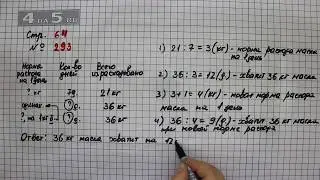 4 на 5 .RU
Стр. 64
№ 293
Норма расхода на 1 день
Кол-во дней
Всего израсходовано
? кг
7д.
21 кг
? д.
36 кг
? , на 1 кг б.
? д.
36 кг
1) 21 : 7 = 3 (кг) - норма расхода масла на 1 день
2) 36 : 3 = 12 (д) - хватит 36 кг
3) 3 + 1 = 4 (кг) - новая норма расхода масла на 1 день
4) 36 : 4 = 9 (д) - хватит 36 кг масла при новой норме расхода
Ответ: 36 кг масла хватит на 12